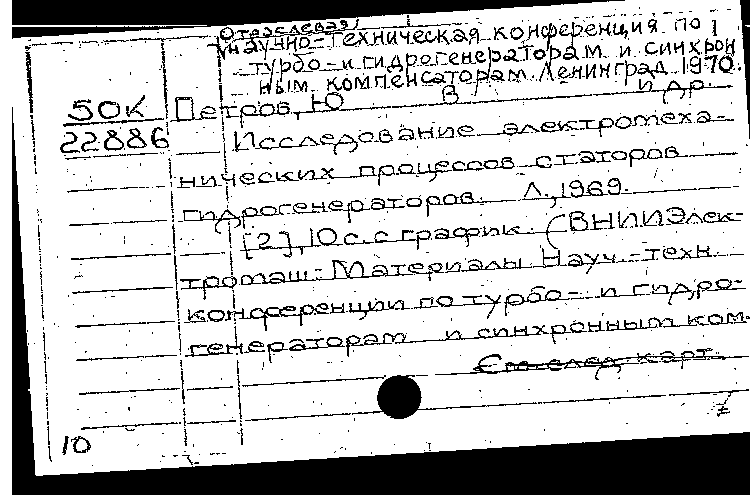 Отраслевая
научно-техническая конференция по
турбо- и гидрогенераторам и синхрон
ным компенсаторам. Ленинград 1970.
50К Петров, Ю В и др.
22886 Исследование электромеха-
нических процессов статоров
гидрогенераторов. Л., 1969.
[2], 10 с. с график. (ВНИИЭлек-
тромаш. Материалы Науч.-техн.
конференции по турбо- и гидро-
генераторам и синхронным ком-
См след карт.
10